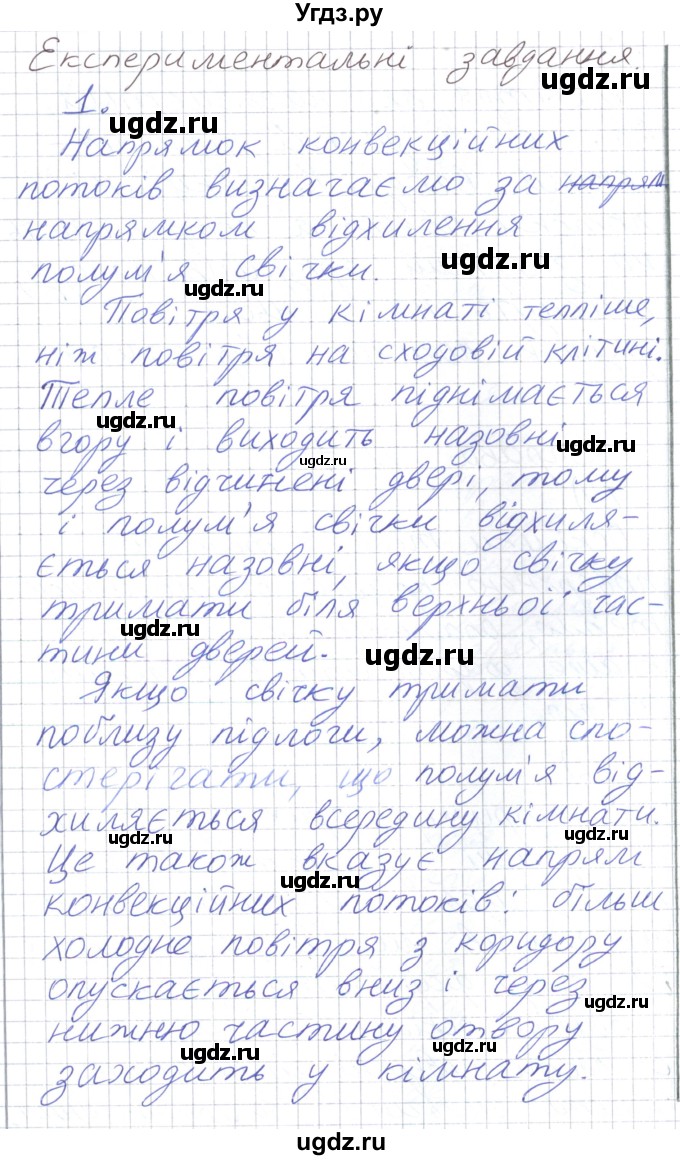 Угдз.ру
Експериментальні завдання.
ugdz.ru
1.
ugdz.ru
Напрямок конвекційних
потоків визначаємо за напрям
напрямком відхилення
ugdz.ru
полум'я свічки.
ugdz.ru
Повітря у кімнаті тепліше,
ніж повітря на сходовій клітині.
ugdz.ru
Тепле повітря піднімається
ugdz.ru
вгору і виходить назовні
ugdz.ru
ugdz.ru
через відчинені двері, тому
і полум'я свічки відхиля-
ugdz.ru
ється назовні, якщо свічку
тримати біля верхньої час-
ugdz.ru
тини дверей.
ugdz.ru
Якщо свічку тримати
поблизу підлоги, можна спо-
стерігати, що полум'я від-
хиляється всередину кімнати.
ugdz.ru
ugdz.ru
Це також вказує напрям
ugdz.ru
конвекційних потоків: більш
холодне повітря з коридору
опускається вниз і через
ugdz.ru
нижню частину отвору
ugdz.ru
ugdz.ru
заходить у кімнату.
ugdz.ru